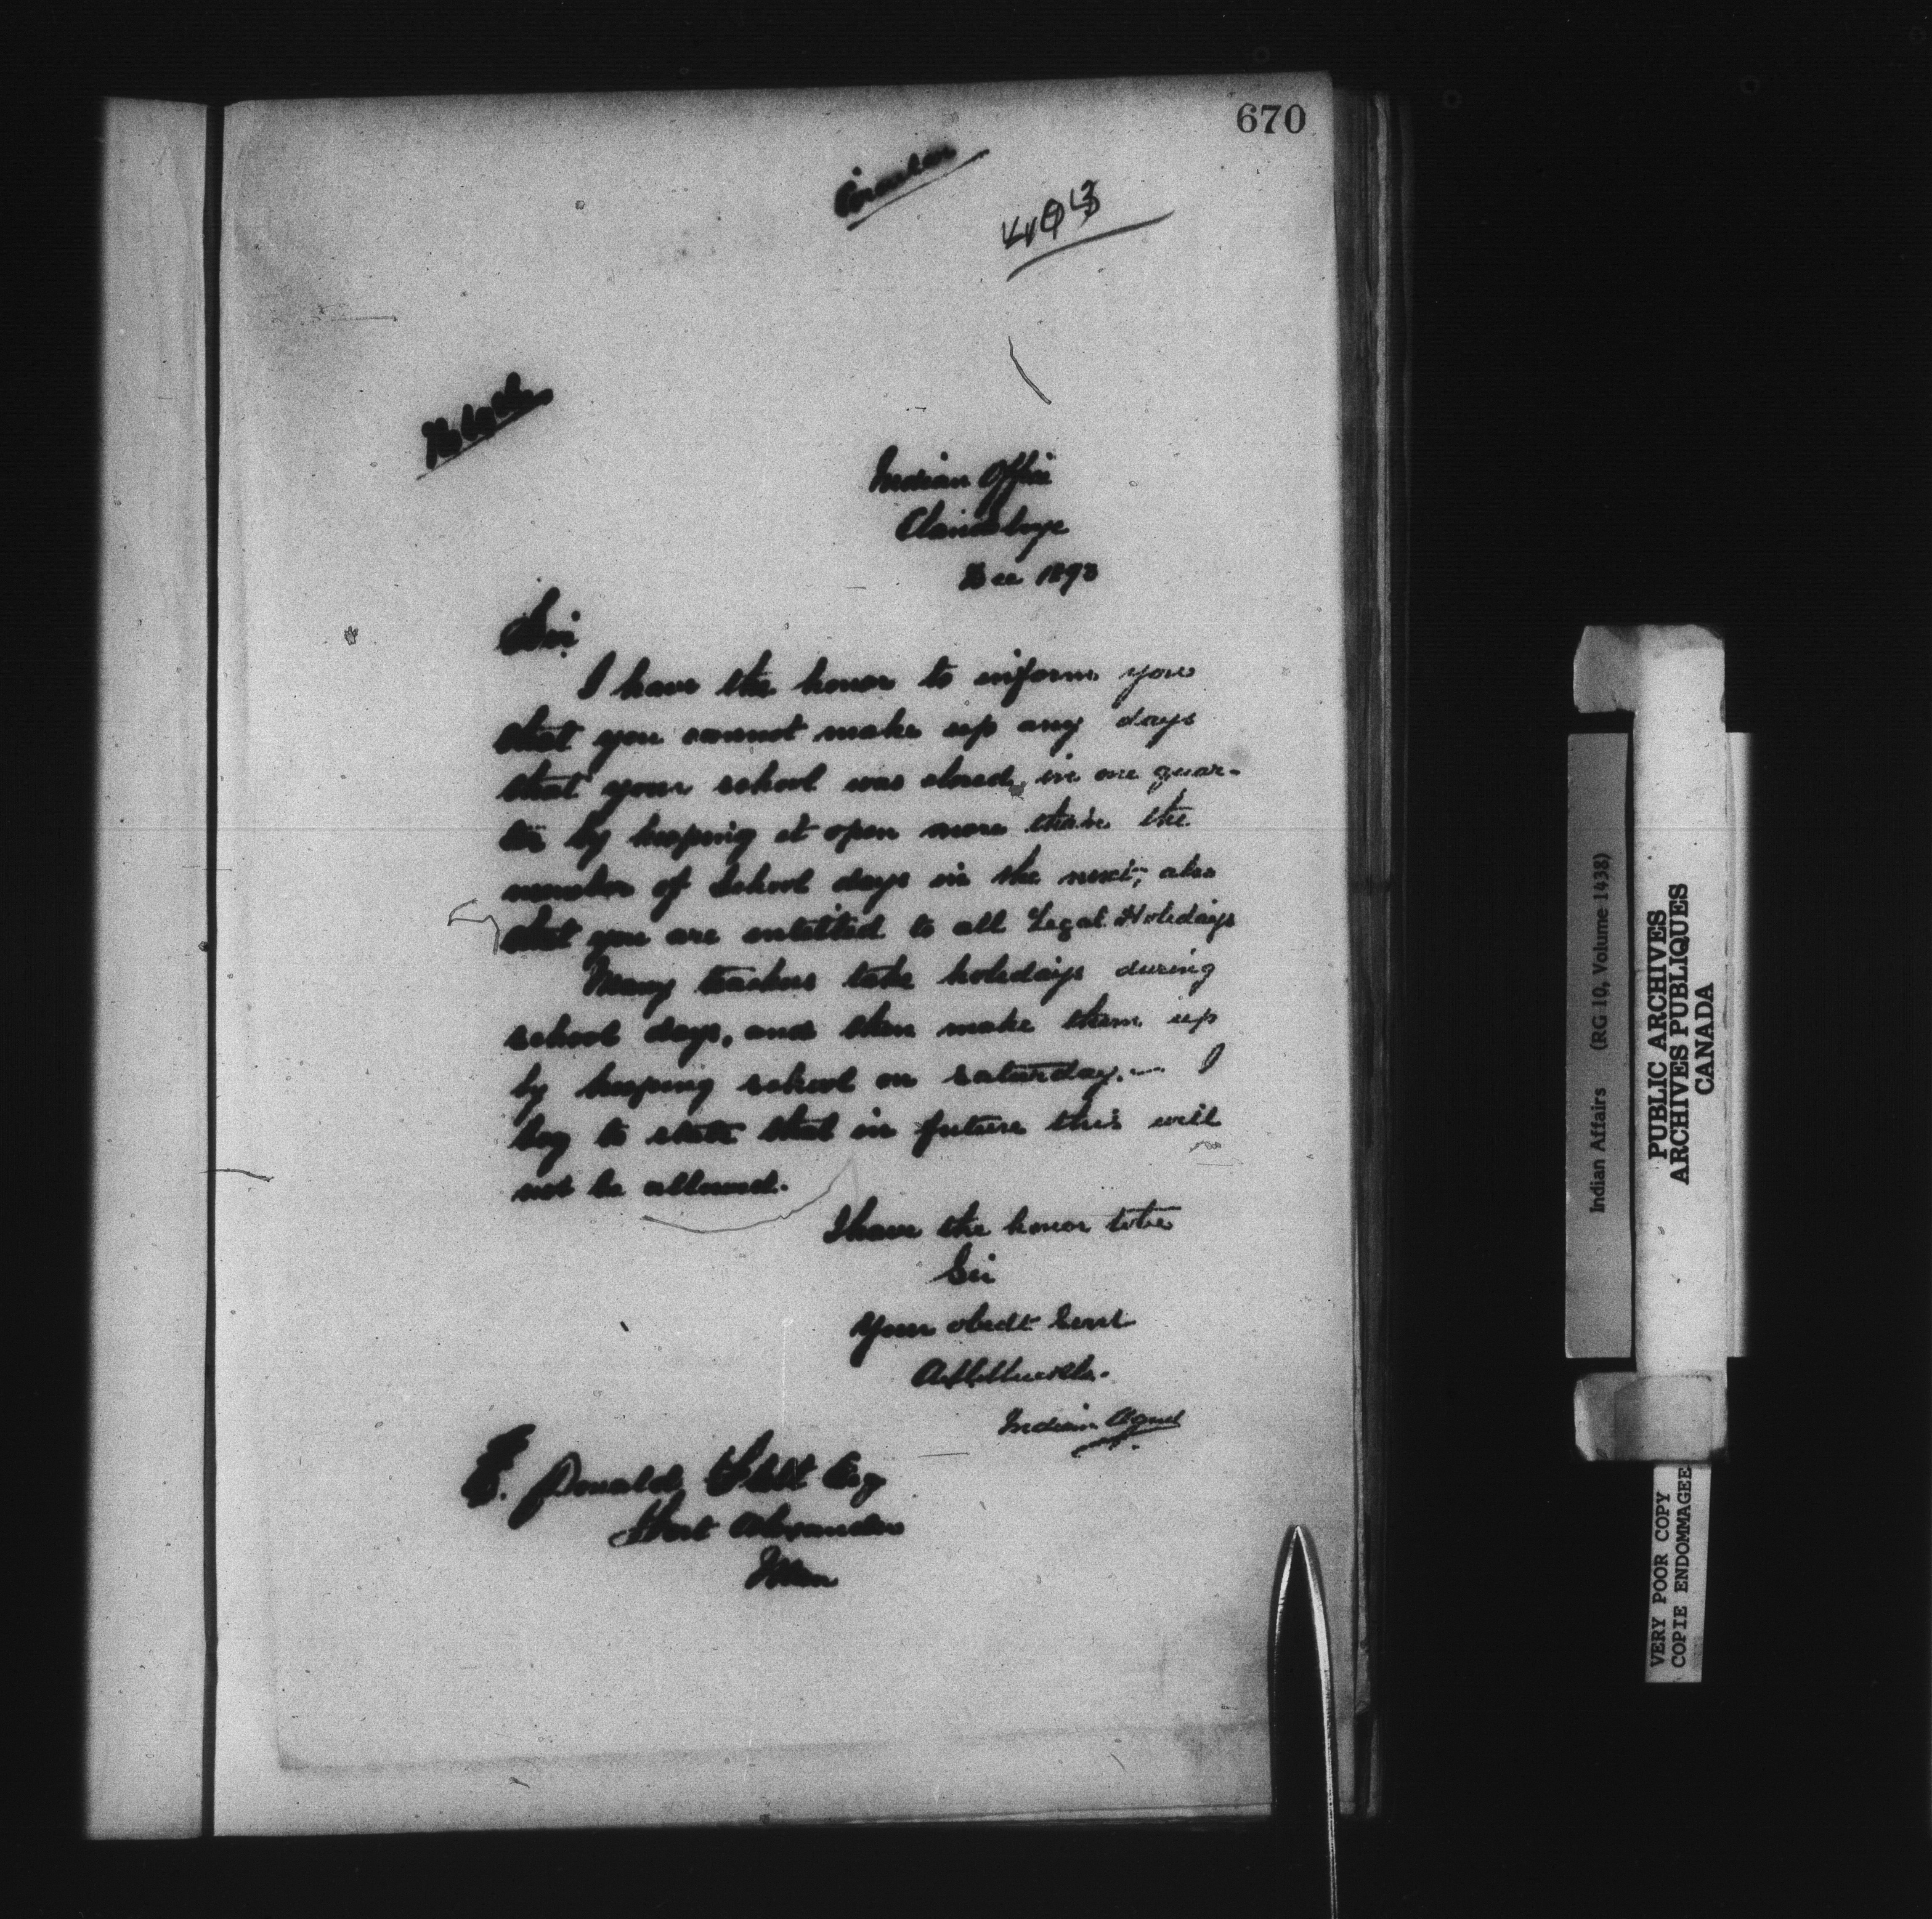 670
Circular
Indian Office
Clandeboye
Dec 1893
Sir
I have the honor to inform you
that you cannot make up any days
that your school was closed, in one quar-
ter by keeping it open more than the
number of School days in the next; also
that you are entitled to all Legal Holidays
Many teachers take holidays during
school days, and then make them up
by keeping school on saturday. — I
beg to state that in future this will
not be allowed.
I have the honor to be
Sir
Your obedt Servt
Indian Agent
Donald Esq
Fort Alexander
Man
Indian Affairs (RG 10, Volume 1438)
PUBLIC ARCHIVES
ARCHIVES PUBLIQUES
CANADA
VERY POOR COPY
COPIE ENDOMMAGEE